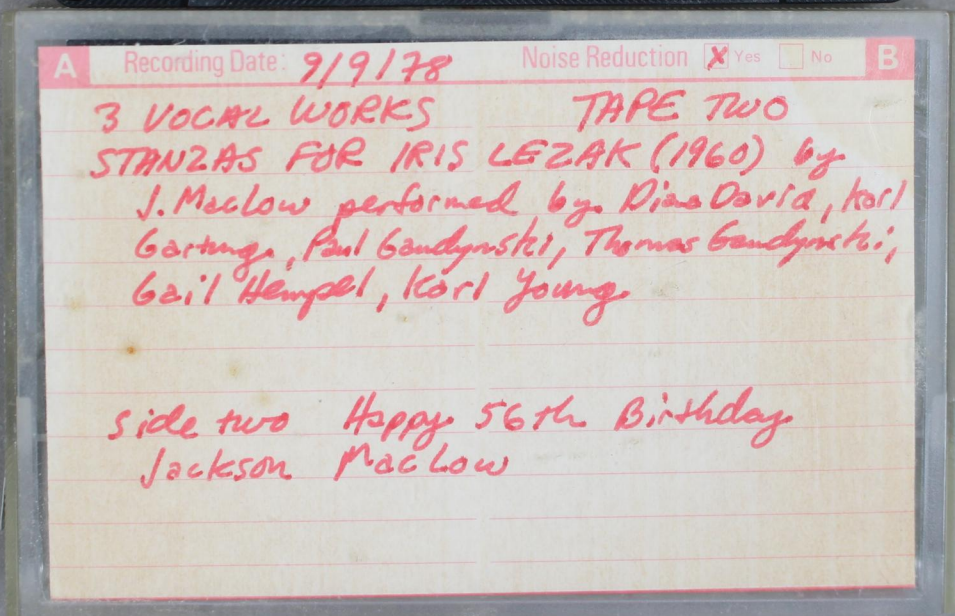 A Recording Date: 9/9/78 Noise Reduction X Yes No B
3 VOCAL WORKS TAPE TWO
STANZAS FOR IRIS LEZAK (1960) by
J. Maclow performed by Diane David, Karl
Gartung, Paul Gaudynski, Thomas Gaudynski,
Gail Hempel, Karl Young
side two Happy 56th Birthday
Jackson MacLow